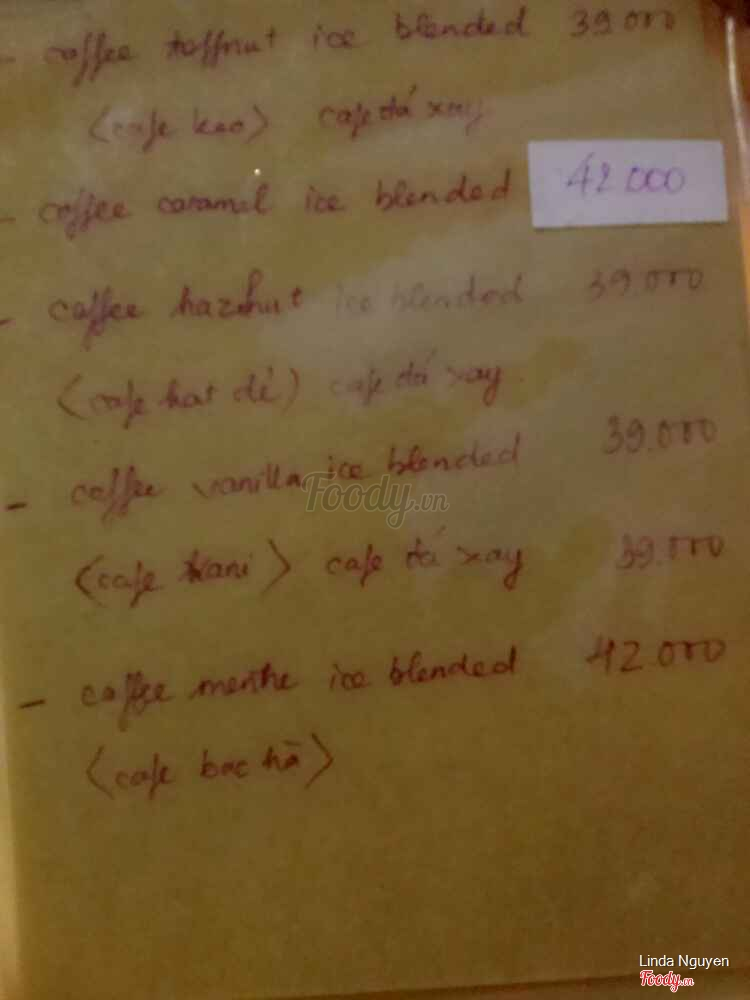 - coffee toffnut ice blended 39.000
<cafe keo> cafe đá xay
- coffee caramel ice blended 42.000
- coffee hazelnut ice blended 39.000
(cafe hat dẻ) cafe đá xay
- coffee vanilla ice blended 39.000
<cafe vani> cafe đá xay 39.000
- coffee menthe ice blended 42.000
<cafe bac hà>
Foody.vn
Linda Nguyen
Foody.vn